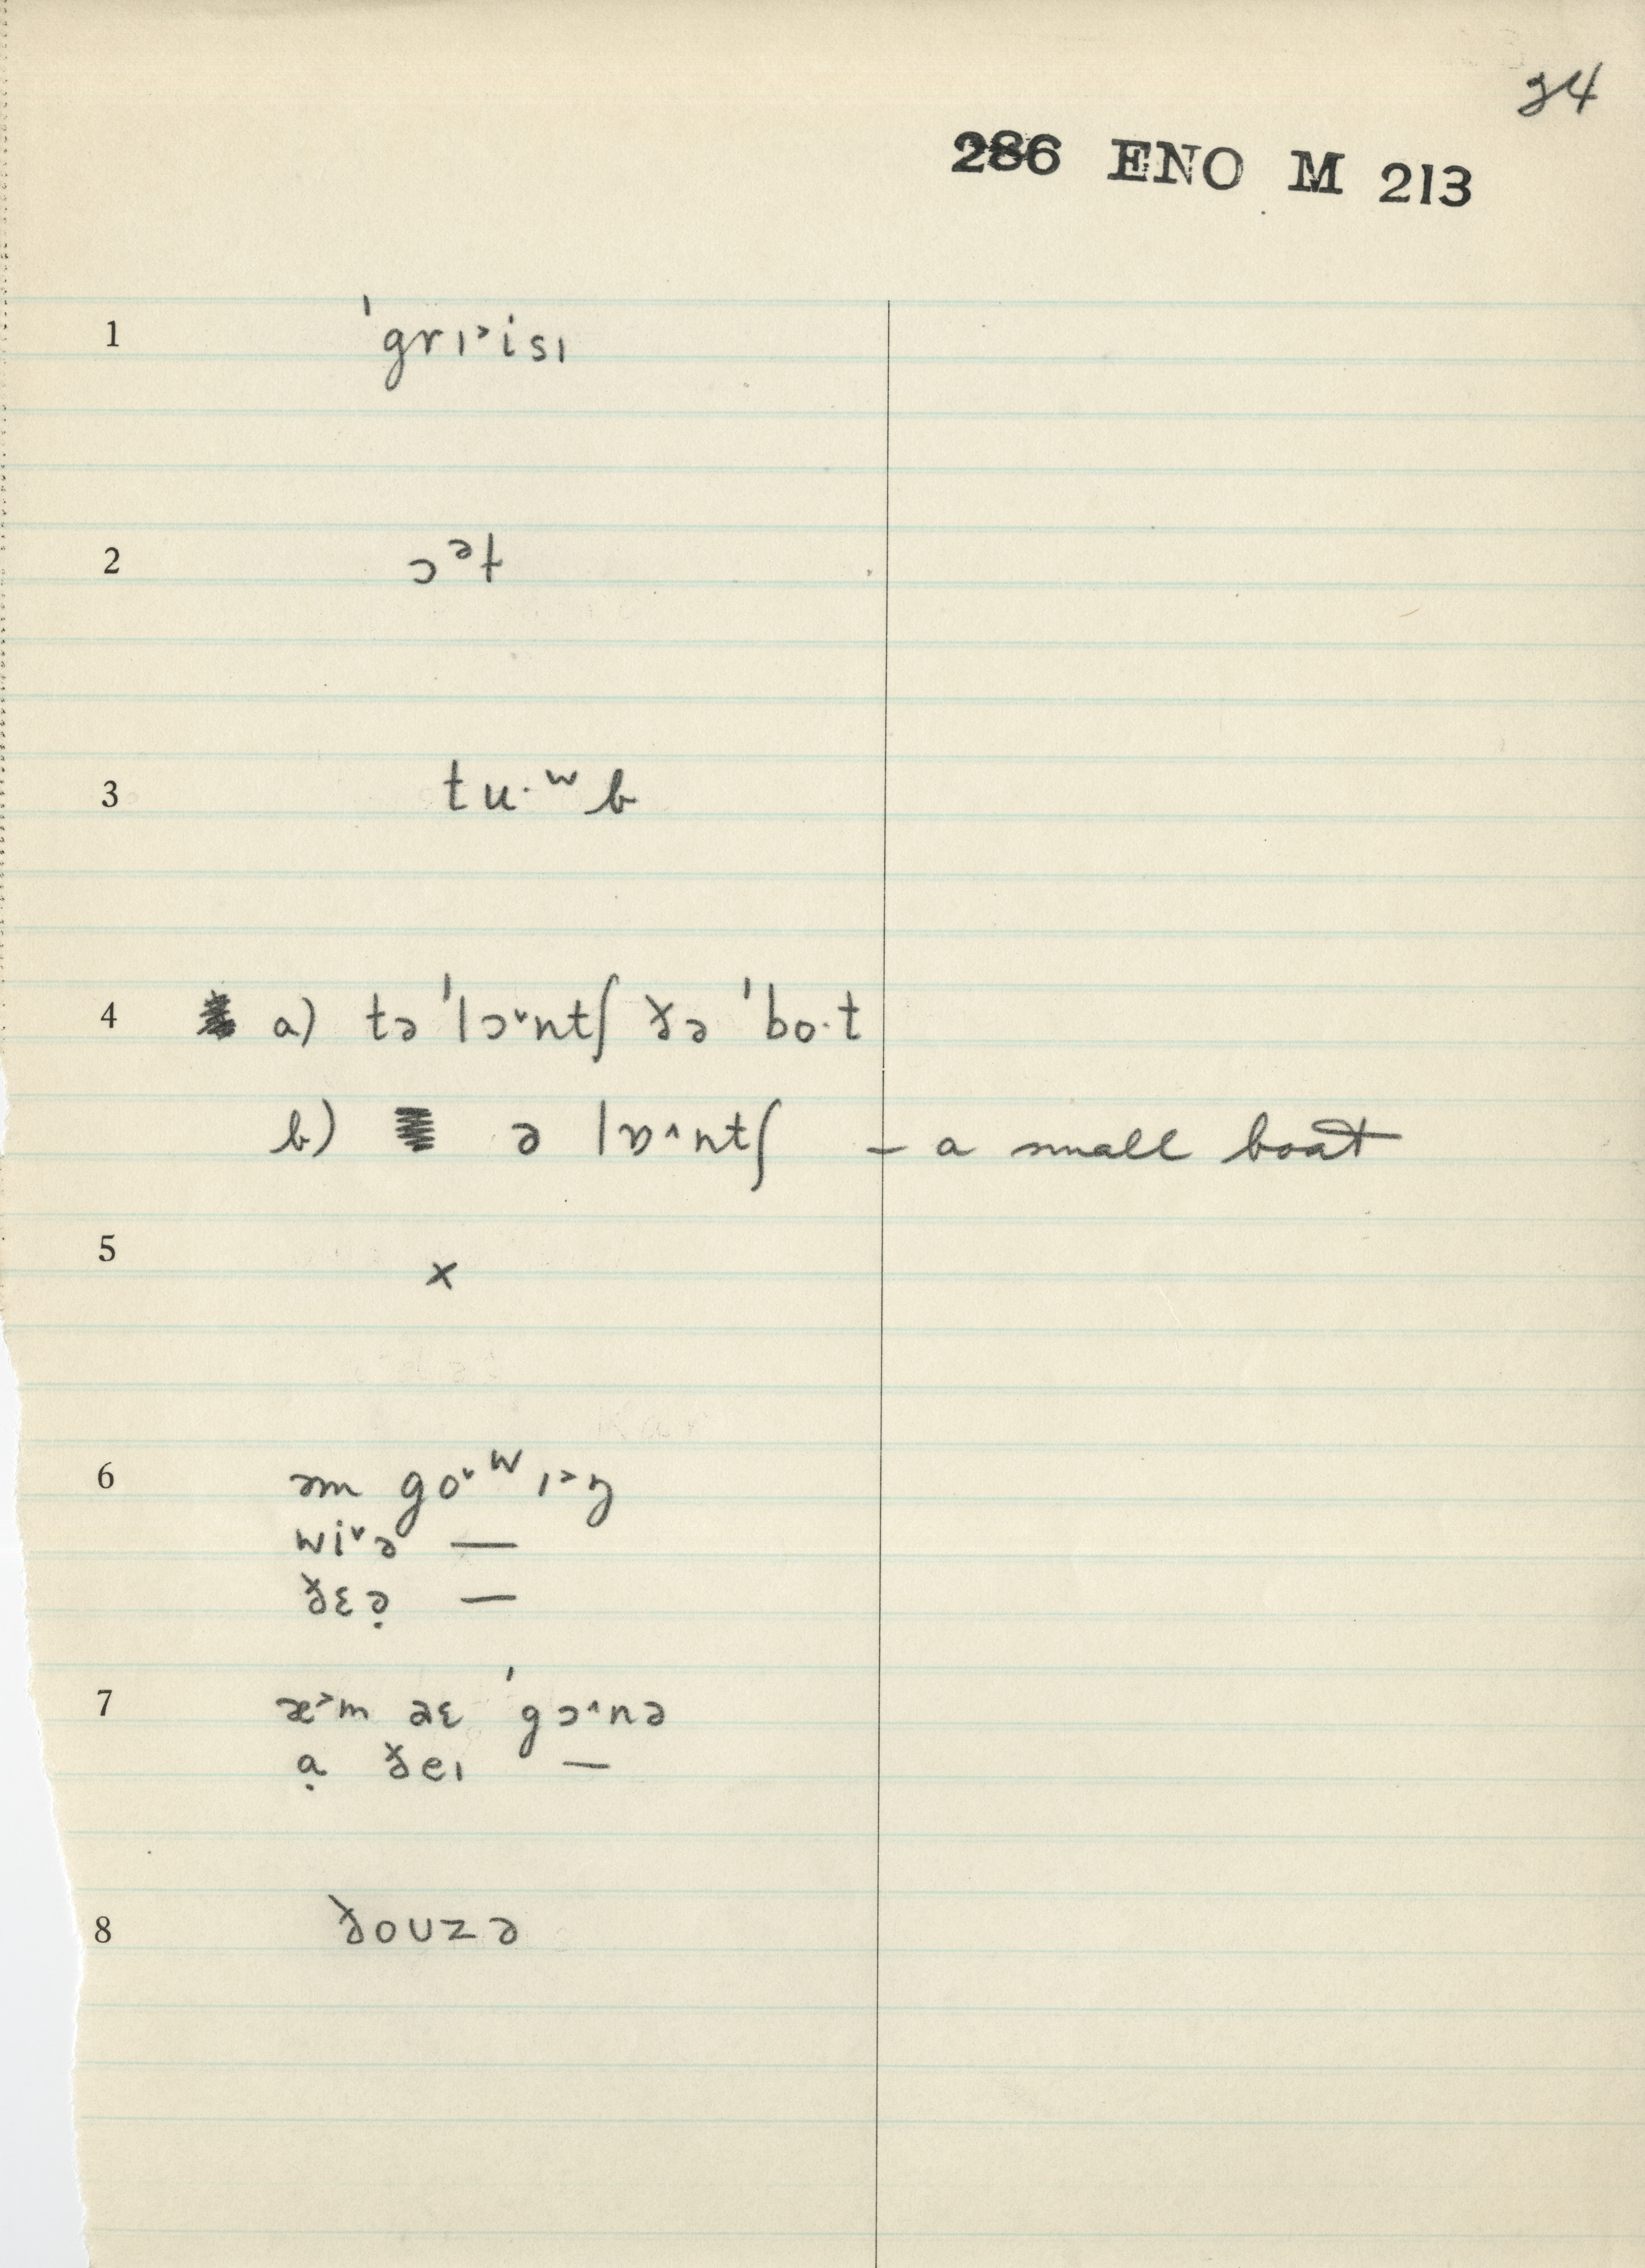 24
286 ENO M 213
1 ˈgrɪ˃isɪ
2 ɔᵊt
3 tu·ʷb
4 a) tə ˈlɔ˅ntʃ ðə ˈbo·t
b) ə lɒ˄ntʃ – a small boat
5 x
6 əm go˅ʷɪ˃ŋ
wi˅ə —
ðɛə̣ —
7 æ˃m əɛ ˈgɔ˄nə
ạ ðeɪ —
8 ðouzə